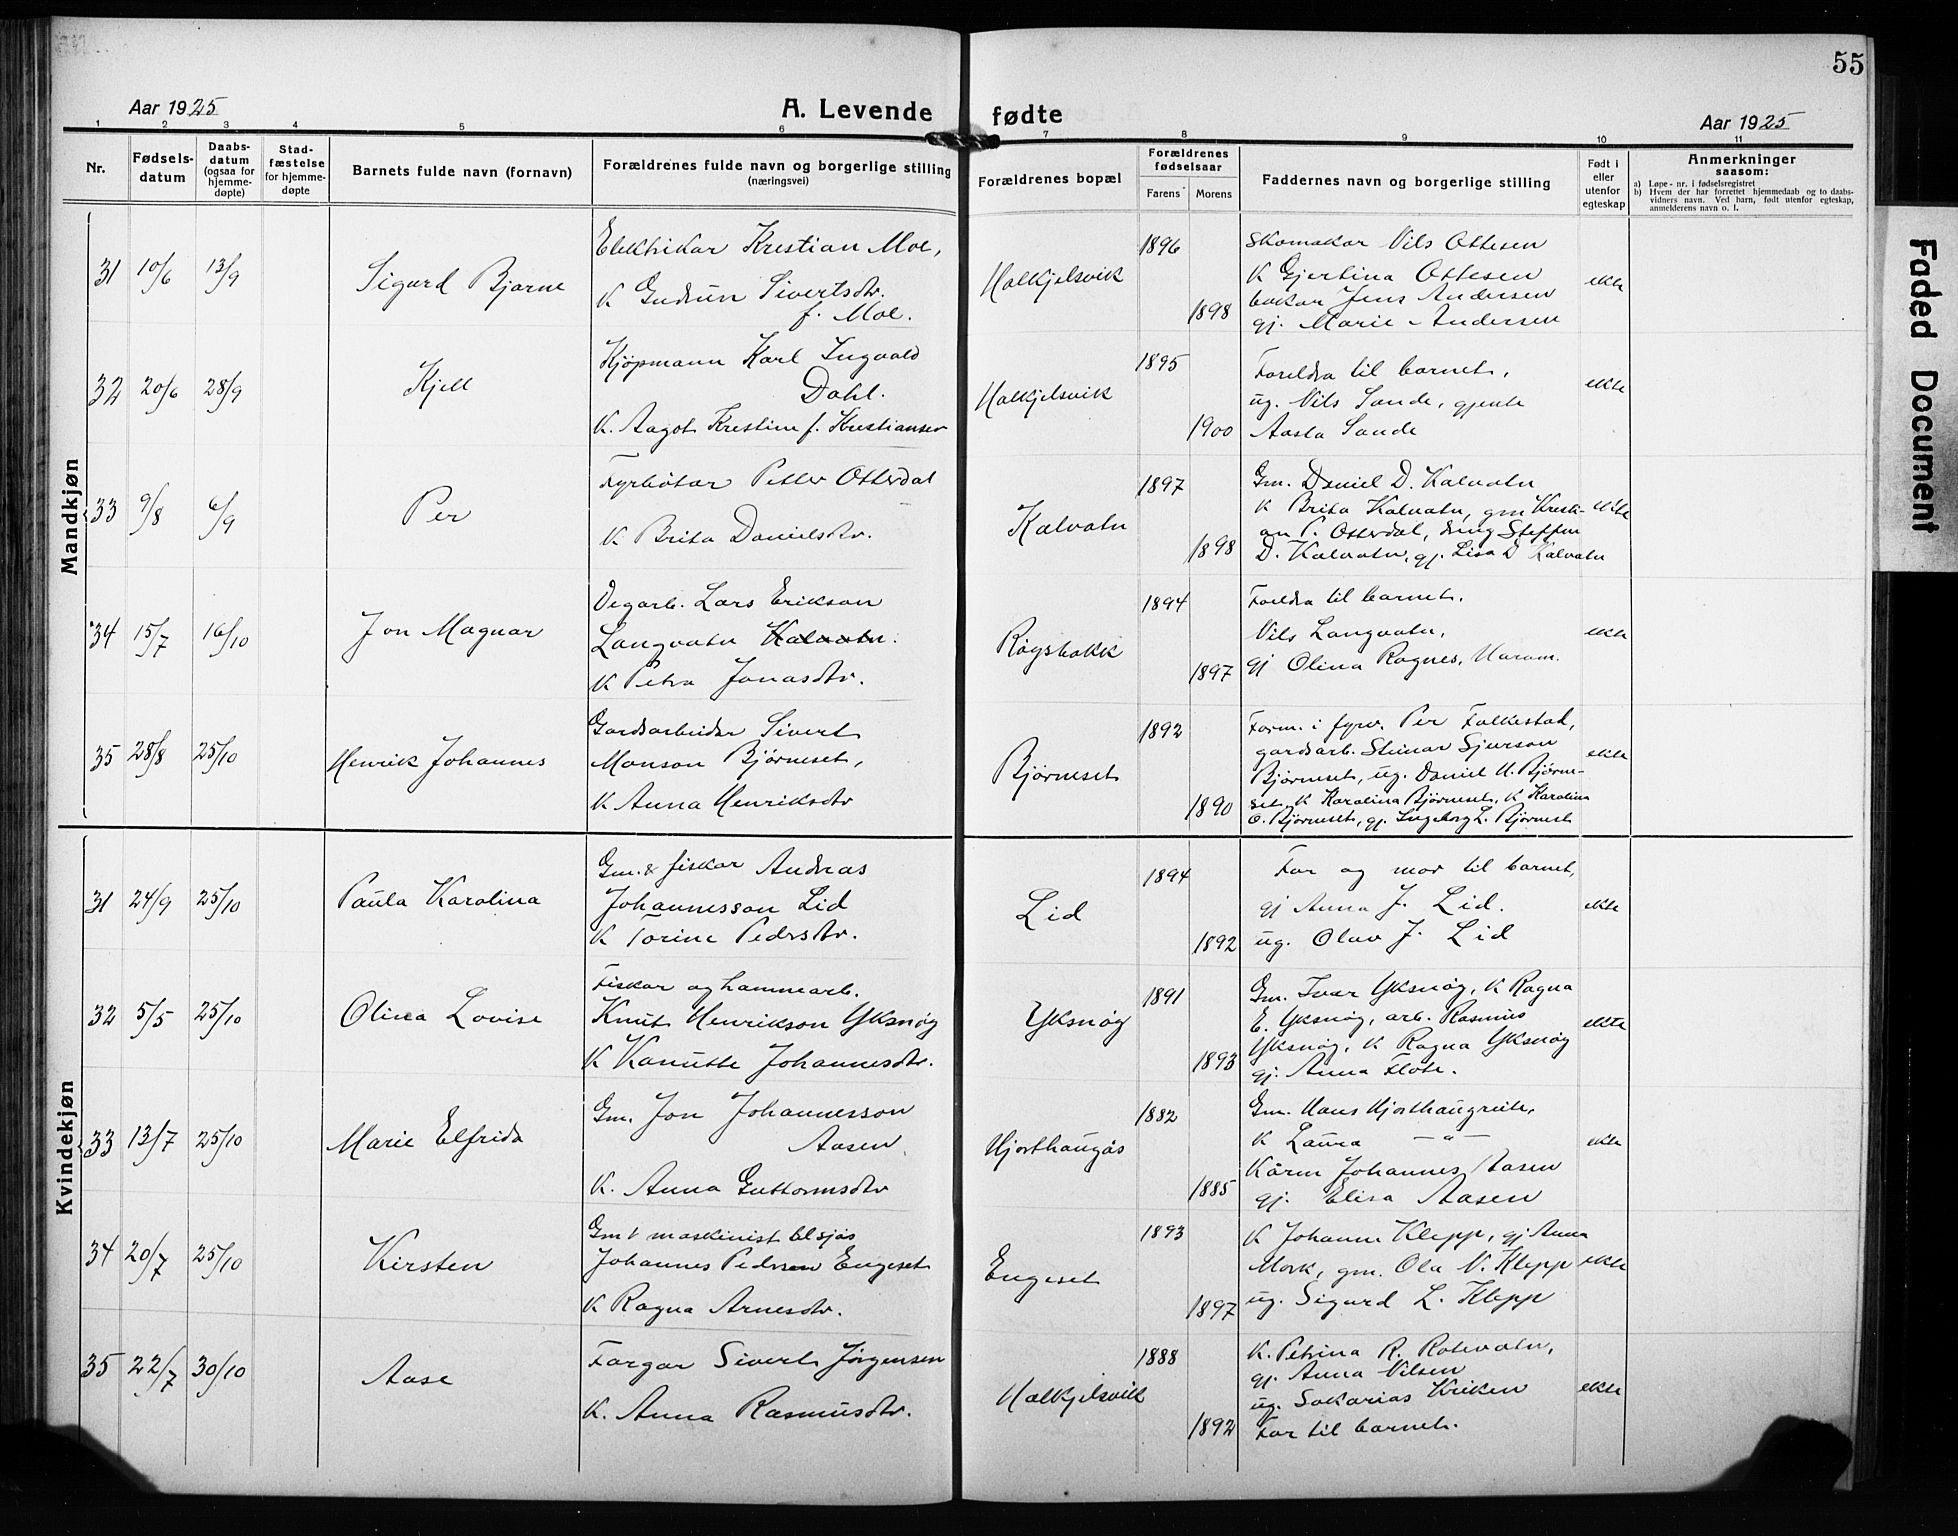 55
Aar 1925
A. Levende fødte
Aar 1925
1 2 3 4 5 6 7 8 9 10 11
Nr.
Fødsels-
datum
Daabs-
datum
(ogsaa for
hjemme-
døpte)
Stad-
fæstelse
for hjemme-
døpte
Barnets fulde navn (fornavn)
Forældrenes fulde navn og borgerlige stilling
(næringsvei)
Forældrenes bopæl
Forældrenes
fødselsaar
Farens
Morens
Faddernes navn og borgerlige stilling
Født i
eller
utenfor
egteskap
Anmerkninger
saasom:
a) Løpe-nr. i fødselsregistret
b) Hvem der har forrettet hjemmedaab og to daabs-
vidners navn. Ved barn, født utenfor egteskap,
anmelderens navn o. l.
Mandkjøn
31 10/6 13/9
Sigurd Bjarne
Elektrikar Kristian Moe,
K Gudrun Sivertsdtr.
f. Moe.
Halkjelsvik
1896
1898
Skomakar Nils Ottesen
K Gjertina Ottesen
bakar Jens Andersen
gj. Marie Andersen
ekte
32 20/6 28/9
Kjell
Kjøpmann Karl Ingvald
Dahl.
K. Aagot Kristine f. Kristiansen
Halkjelsvik
1895
1900
Foreldra til barnet,
ug. Nils Sande, gjente
Aasta Sande
ekte
33 9/8 6/9
Per
Fyrbøtar Petter Otterdal
K Brita Danielsdtr.
Kalvatn
1897
1898
Gm. Daniel D. Kalvatn
K Brita Kalvatn, gm Kristi-
an P. Otterdal, dreng Steffen
D. Kalvatn, gj. Lisa D Kalvatn
ekte
34 15/7 16/10
Jon Magnar
Vegarb. Lars Erikson
Langvatn Kalvatn.
K Petra Jonasdtr.
Røysbakk
1894
1897
Foreldra til barnet.
Nils Langvatn,
gj Olina Ragnes, Haram.
ekte
35 28/8 25/10
Henrik Johannes
Gardsarbeider Sivert
Monson Bjørneset,
K Anna Henriksdtr
Bjørneset
1892
1890
Form. i fyrv. Per Falkestad,
gardsarb. Steinar Sjurson
Bjørneset, ug. Daniel H. Bjørne-
set, K Karolina Bjørneset, K Karolina
O. Bjørneset, gj. Ingeborg L. Bjørneset
ekte
Kvindekjøn
31 24/9 25/10
Paula Karolina
Gm. & fiskar Andreas
Johannesson Lid
K Torine Pedersdtr.
Lid
1894
1892
Far og mor til barnet,
gj Anna J. Lid.
ug. Olav J. Lid
ekte
32 5/5 25/10
Olina Lovise
Fiskar og hammarb.
Knut Henrikson Yksnøy
K Kanutte Johannesdtr.
Yksnøy
1891
1893
Gm. Ivar Yksnøy, K Ragna
E. Yksnøy, arb. Rasmus
Yksnøy, K Ragna Yksnøy
gj. Anna Flote.
ekte
33 13/7 25/10
Marie Elfrida
Gm. Jon Johannesson
Aasen
K. Anna Guttormsdtr
Hjorthaugås
1882
1885
Gm. Hans Hjorthaugreite,
K Laura — " —
Kårm Johannes Aasen
gj. Elisa Aasen
ekte
34 20/7 25/10
Kirsten
Johannes Pedersen Engeset
K Ragna Arnesdtr.
Engeset
1893
1897
K Johanne Klepp, gj Anna
Mork, gm. Ola N. Klepp
ug. Sigurd L. Klepp
ekte
35 22/7 30/10
Aase
Fargar Sivert Jørgensen
K. Anna Rasmusdtr.
Halkjelsvik
1888
1892
K. Petrina R. Rotevatn,
gj. Anna Nilsen
ug. Sakarias Kriken
Far til barnet.
ekte
Faded Document